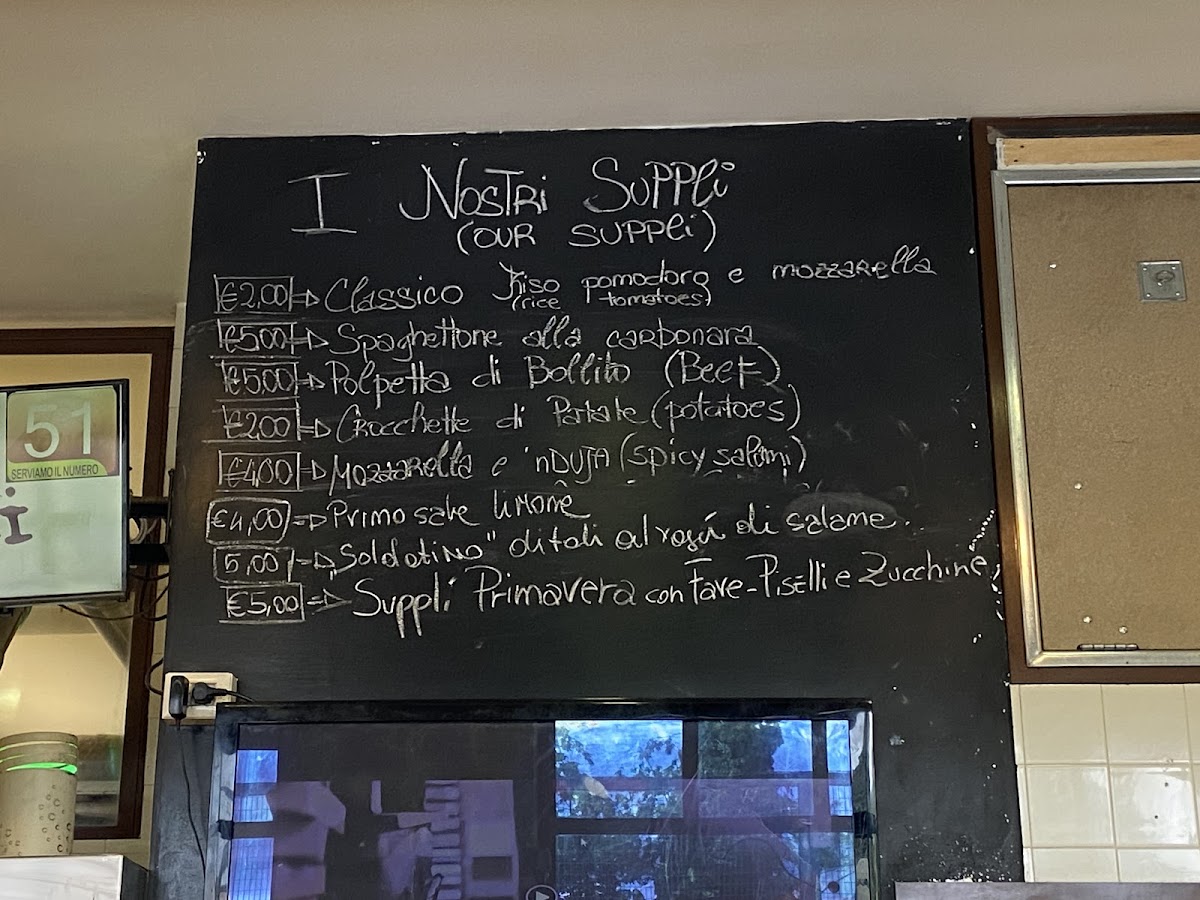 I NOSTRI SUPPLI
(OUR SUPPLI)
€2,00 Classico Riso pomodoro e mozzarella
(rice tomatoes)
€5,00 Spaghettone alla carbonara
€5,00 Polpetta di Bollito (BEEF)
€2,00 Crocchette di Patate (potatoes)
€4,00 Mozzarella e 'NDUJA (spicy salami)
€4,00 Primo sale limone
5,00 "Soldatino" ditali al ragù di salame
€5,00 Supplì Primavera con Fave-Piselli e Zucchine
51
SERVIAMO IL NUMERO
i